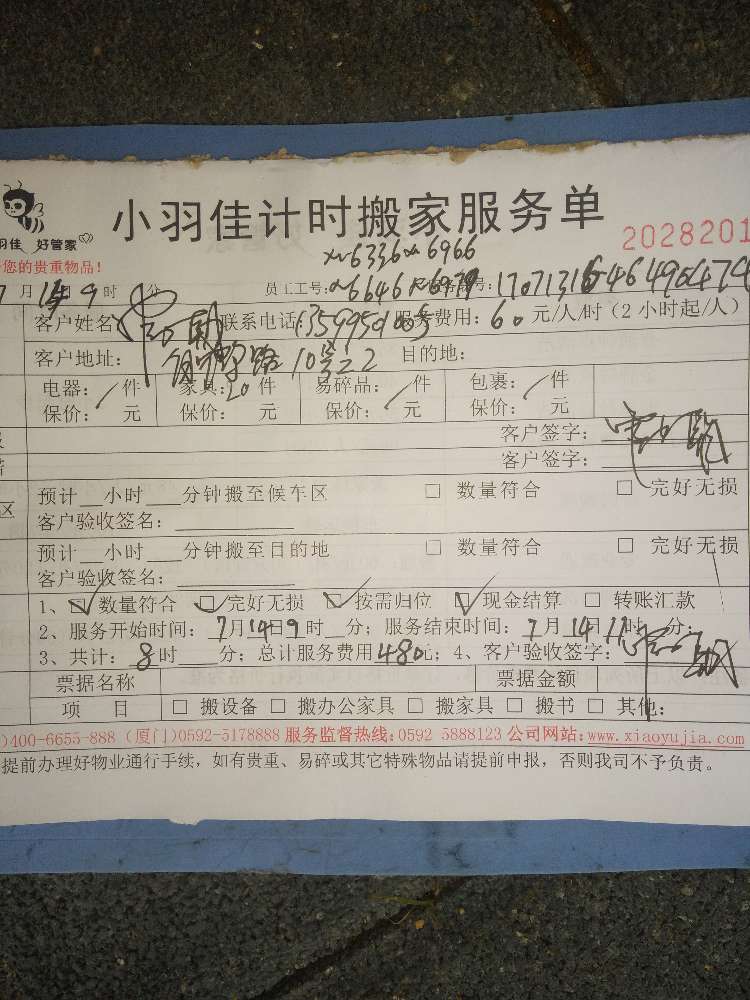 小羽佳计时搬家服务单
羽佳 好管家
2028201
您的贵重物品!
6336 6966
7月14 9时 分 员工工号: 6646 6979 号:
客户姓名: 联系电话: 服务费用:60元/人/时(2小时起/人)
客户地址: 路10号 目的地:
电器: /件 家具:20件 易碎品: /件 包裹: /件
保价: 元 保价: 元 保价: 元 保价: 元
客户签字:
客户签字:
区 预计__小时___分钟搬至候车区 □ 数量符合 □ 完好无损
客户验收签名:
预计__小时___分钟搬至目的地 □ 数量符合 □ 完好无损
客户验收签名:
1、☑数量符合 ☑完好无损 ☑按需归位 ☑现金结算 □ 转账汇款
2、服务开始时间:7月14日9时__分;服务结束时间:7月14日11时__分;
3、共计:8时___分;总计服务费用480元;4、客户验收签字:
票据名称 票据金额
项 目 □ 搬设备 □ 搬办公家具 □ 搬家具 □ 搬书 □ 其他:
)400-6655-888 (厦门)0592-5178888 服务监督热线:0592 5888123 公司网站:www.xiaoyujia.com
提前办理好物业通行手续,如有贵重、易碎或其它特殊物品请提前申报,否则我司不予负责。